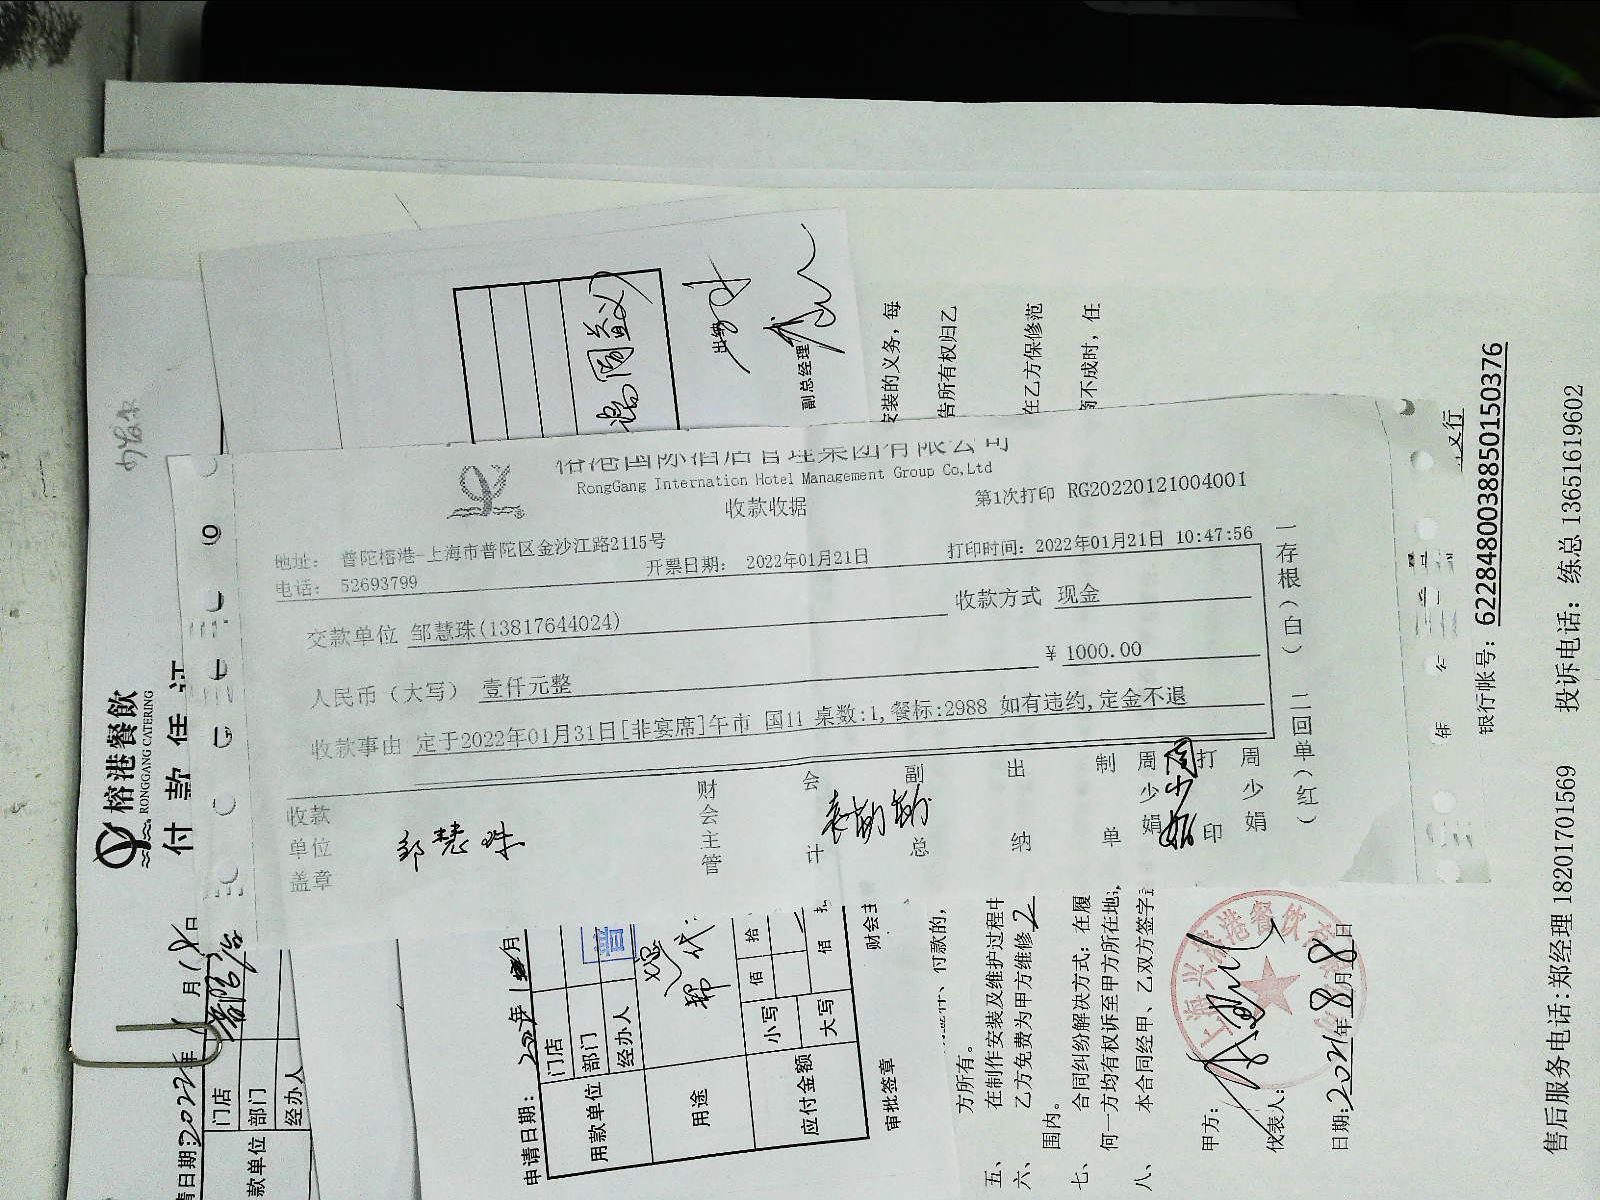 榕港国际酒店管理集团有限公司
RongGang Internation Hotel Management Group Co,Ltd
收款收据
第1次打印 RG20220121004001
地址： 普陀榕港-上海市普陀区金沙江路2115号
电话： 52693799
开票日期： 2022年01月21日
打印时间：2022年01月21日 10:47:56
交款单位 邹慧珠(13817644024)
收款方式 现金
人民币（大写） 壹仟元整
￥ 1000.00
收款事由 定于2022年01月31日[非宴席]午市 国11 桌数:1,餐标:2988 如有违约,定金不退
收款单位盖章
邹慧珠
财会主管
会计
副总
出纳
制单
周少娟
打印
周少娟
一存根（白） 二回单（红）
榕港餐飲
RONGGANG CATERING
付款任
日期:2022年
月18日
门店
部门
经办人
款单位
出纳
副总经理
申请日期:
年
月
用款单位
门店
部门
经办人
普
用途
应付金额
小写
佰
拾
大写
佰
审批签章
财会主
安装的义务，每
告所有权归乙
在乙方保修范
不成时，任
付款的，
方所有。
五、 在制作安装及维护过程中
六、 乙方免费为甲方维修2
围内。
七、 合同纠纷解决方式：在履
何一方均有权诉至甲方所在地
八、 本合同经甲、乙双方签字
甲方：
代表人：
日期:2021年8月8日
银行帐号：6228480038850150376
售后服务电话:郑经理 18201701569 投诉电话：练总 13651619602